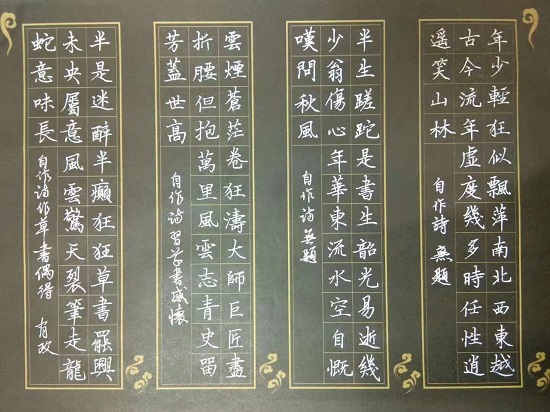 年少輕狂似飄萍南北西東越
古今流年虛度幾多時任性逍
遥笑山林
自作詩 無題
半生蹉跎是書生韶光易逝幾
少翁傷心年華東流水空自慨
嘆問秋風
自作詩無題
雲煙蒼茫卷狂濤大師巨匠盡
折腰但抱萬里風雲志青史留
芳蓋世高
自作詩習草書感懷
半是迷醉半癲狂狂草書罷興
未央屬意風雲驚天裂筆走龍
蛇意味長
自作詩作草書偶得 有政